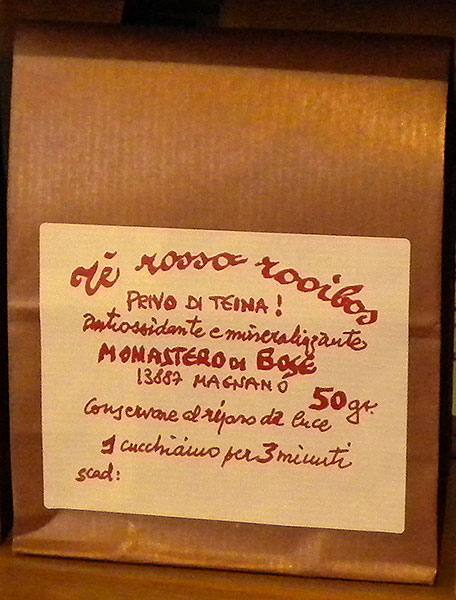 tè rosso rooibos
PRIVO DI TEINA!
antiossidante e mineralizzante
MONASTERO DI BOSE
13887 MAGNANO
50 gr.
Conservare al riparo da luce
1 cucchiaino per 3 minuti
scad: